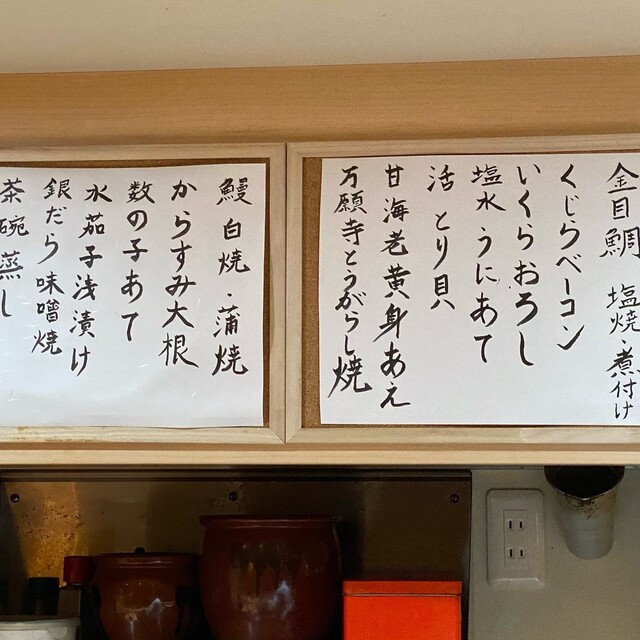 金目鯛 塩焼・煮付け
くじらベーコン
いくらおろし
塩水うにあて
活とり貝
甘海老黄身あえ
万願寺とうがらし焼
鰻 白焼・蒲焼
からすみ大根
数の子あて
水茄子浅漬け
銀だら味噌焼
茶碗蒸し